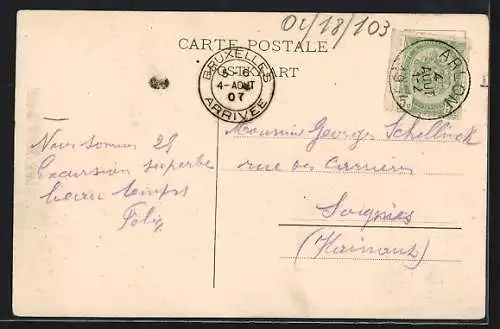 04/18/103
CARTE POSTALE
POSTKAART
BRUXELLES
5-6
4-AOUT
07
ARRIVÉE
ARLON
4
AOUT
Nous sommes 25
Excursion superbe
beau temps
Félix
Monsieur Georges Schellinck
rue des Carrières
Soignies
(Hainaut)